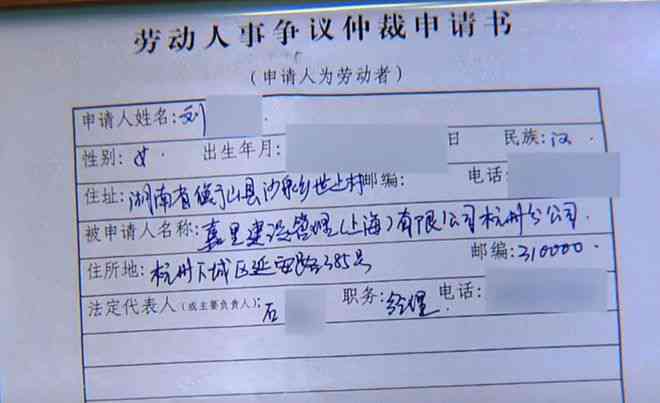 劳动人事争议仲裁申请书
（申请人为劳动者）
申请人姓名：刘
性别：女 出生年月： 日 民族：汉
住址：湖南省衡山县沙泉乡世上村 邮编： 电话：
被申请人名称：嘉里建设管理（上海）有限公司杭州分公司
住所地：杭州下城区延安路385号 邮编：310000
法定代表人（或主要负责人）：石 职务：经理 电话：